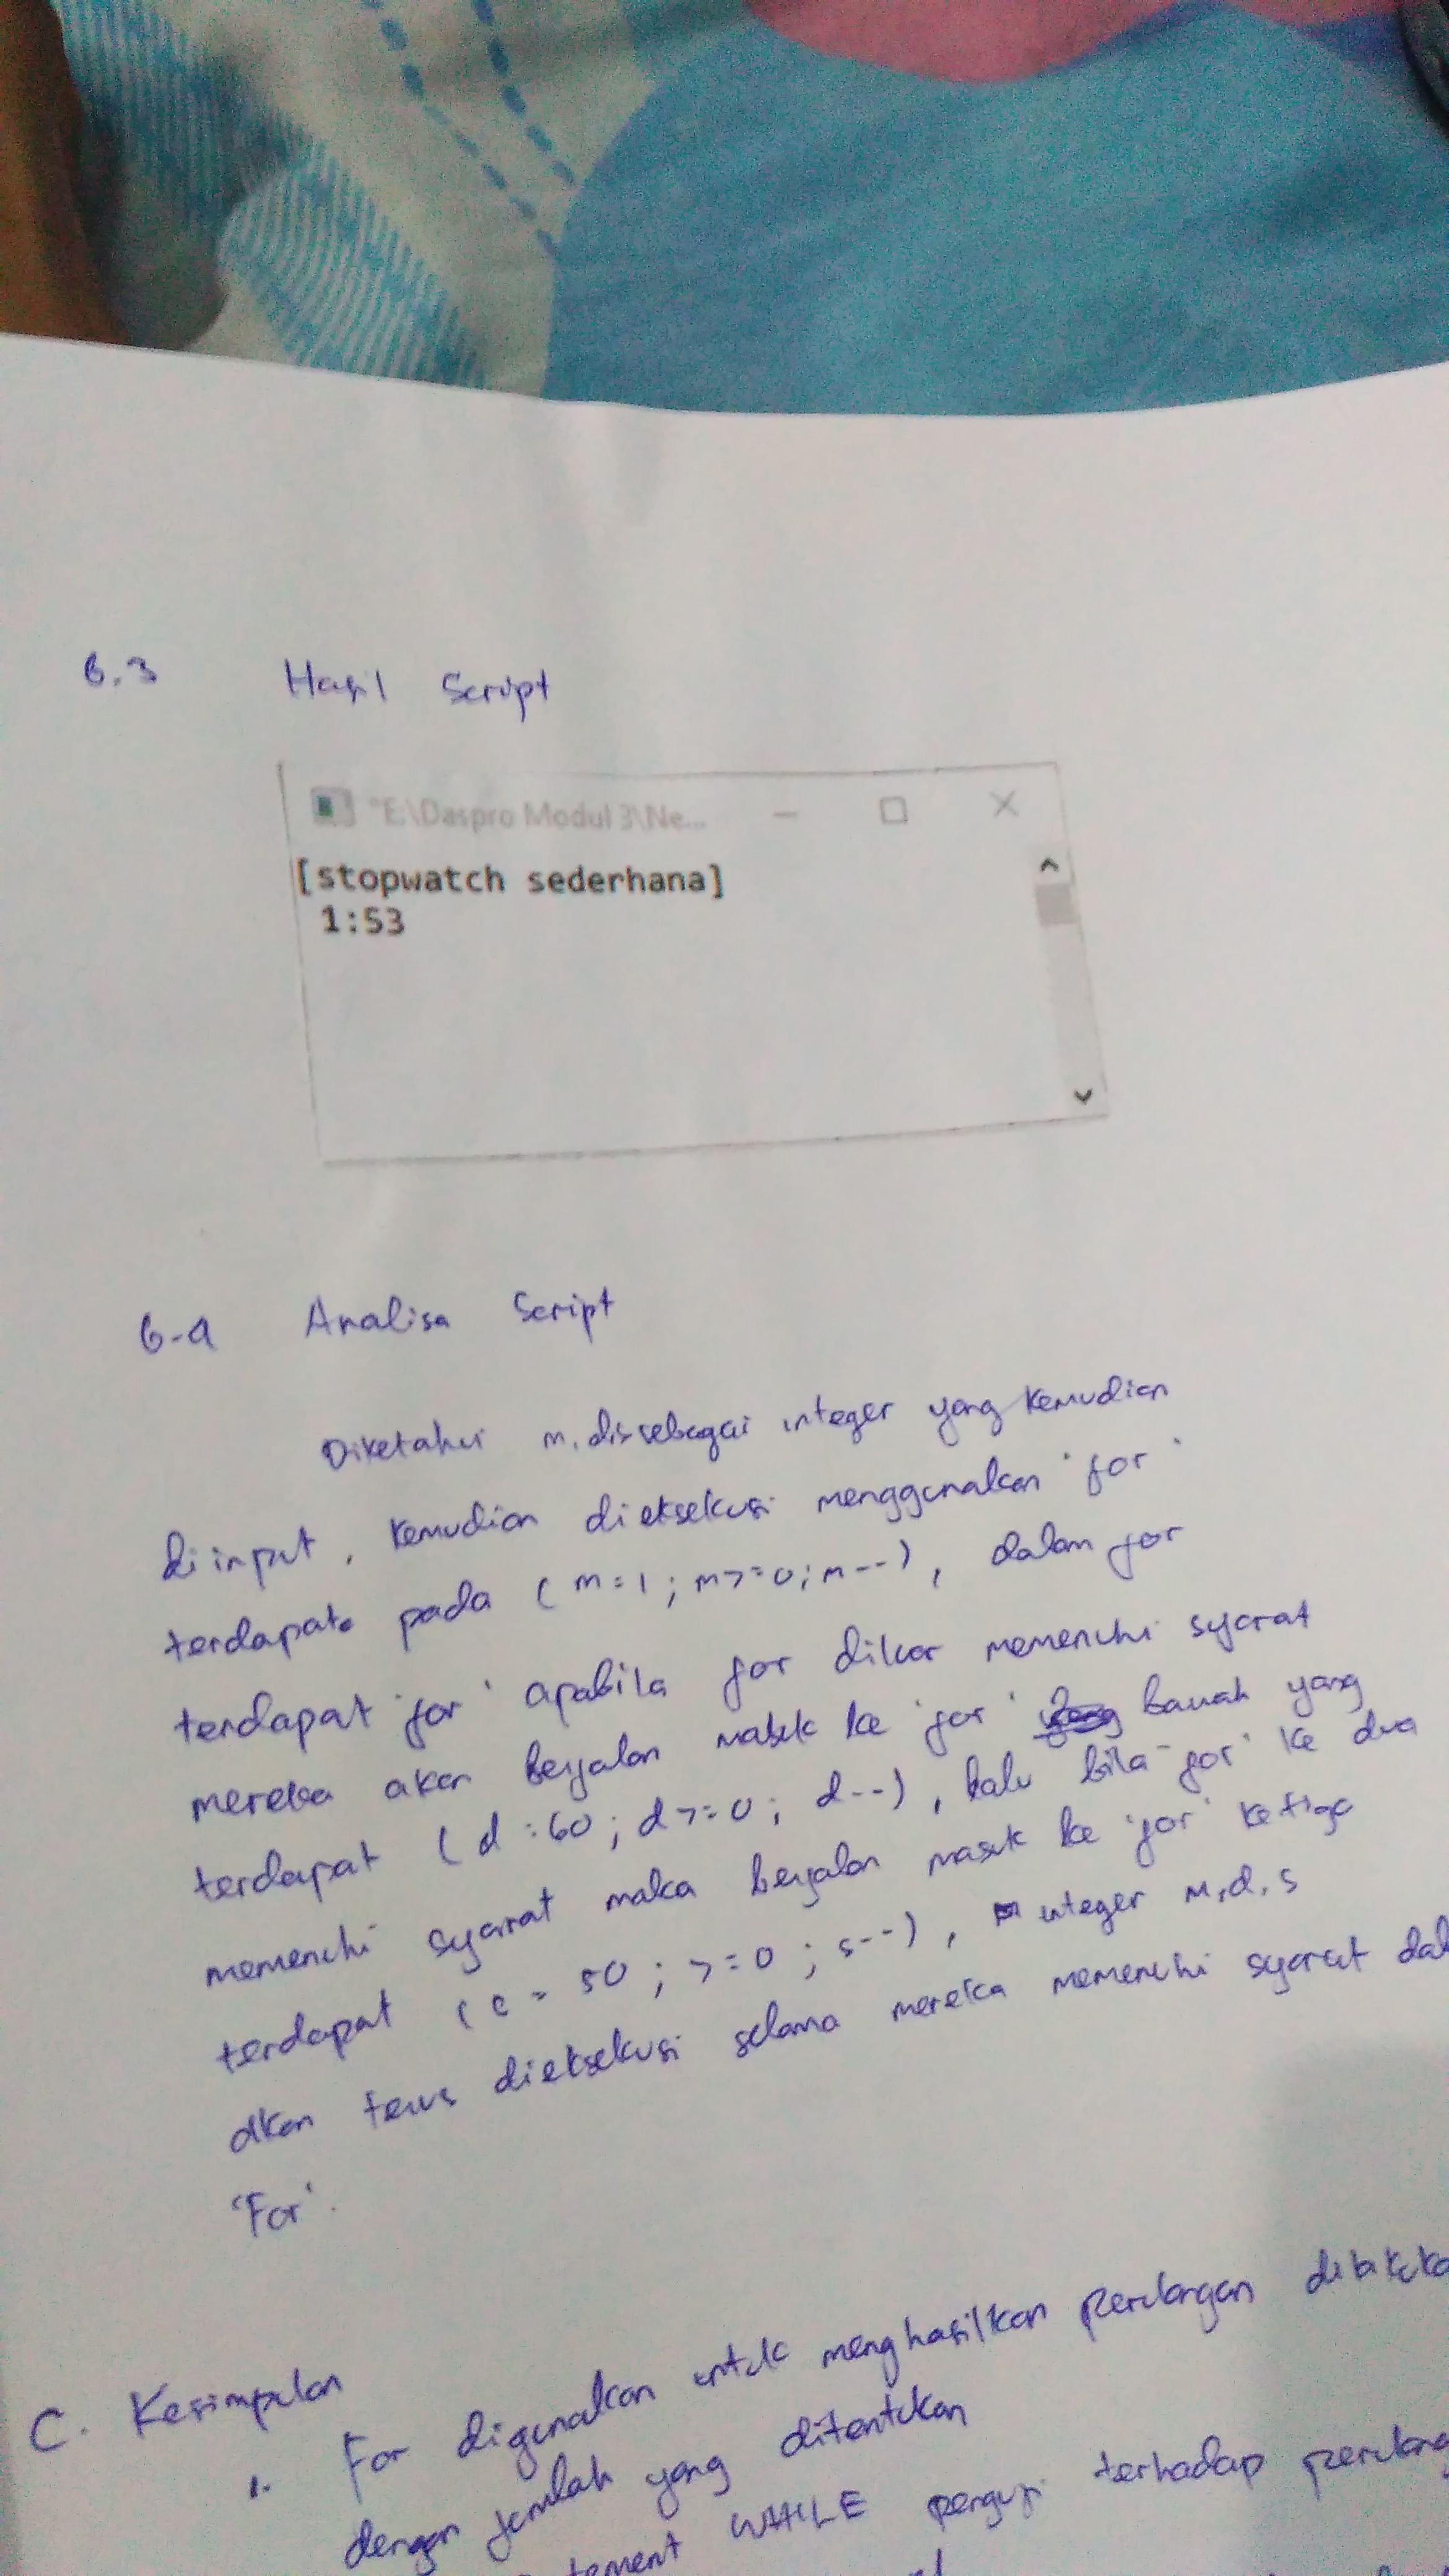 6.3 Hasil Script
"E:\Daspro Modul 3\Ne...
[stopwatch sederhana]
1:53
6.4 Analisa Script
Diketahui m,d,s sebagai integer yang kemudian
di input, kemudian dieksekusi menggunakan 'for'
terdapat pada (m=1; m>=0; m--), dalam for
terdapat 'for' apabila for diluar memenuhi syarat
mereka akan berjalan masuk ke 'for' bawah yang
terdapat (d=60; d>=0; d--), lalu bila 'for' ke dua
memenuhi syarat maka berjalan masuk ke 'for' ketiga
terdapat (c = 50; >=0; s--), integer m,d,s
akan terus dieksekusi selama mereka memenuhi syarat dal
'For'.
C. Kesimpulan
1. For digunakan untuk menghasilkan perulangan
dengan jumlah yang ditentukan
tement WHILE penguji terhadap perulang